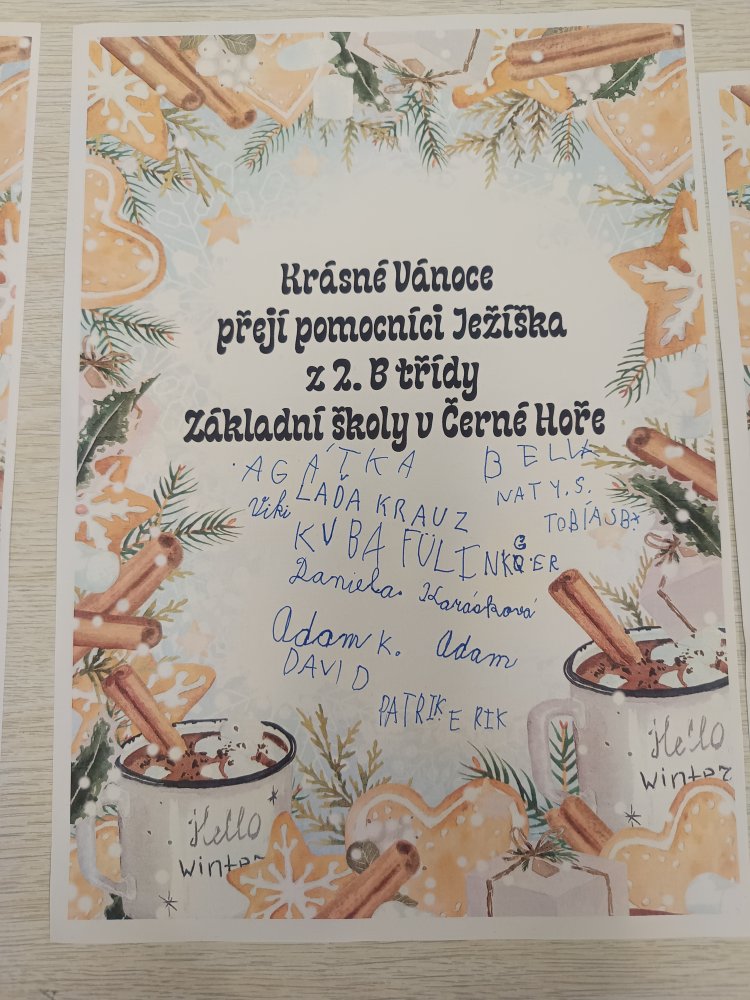 Krásné Vánoce
přejí pomocníci Ježíška
z 2. B třídy
Základní školy v Černé Hoře
AGÁTKA
BELLA
Viki
LAĎA KRAUZ
NATY.S.
TOBIÁŠ
KUBA
Daniela Karásková
Adam K. Adam
DAVID
PATRIK ERIK
Hello
winter
Hello
winter